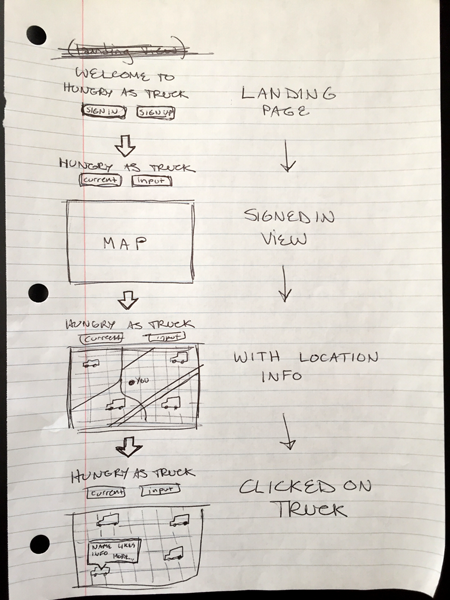 (Landing View)
WELCOME TO
HUNGRY AS TRUCK
SIGN IN SIGN UP
LANDING
PAGE
HUNGRY AS TRUCK
current input
MAP
SIGNED IN
VIEW
HUNGRY AS TRUCK
current input
YOU
WITH LOCATION
INFO
HUNGRY AS TRUCK
current input
CLICKED ON
TRUCK
NAME LIKES
INFO
MORE...